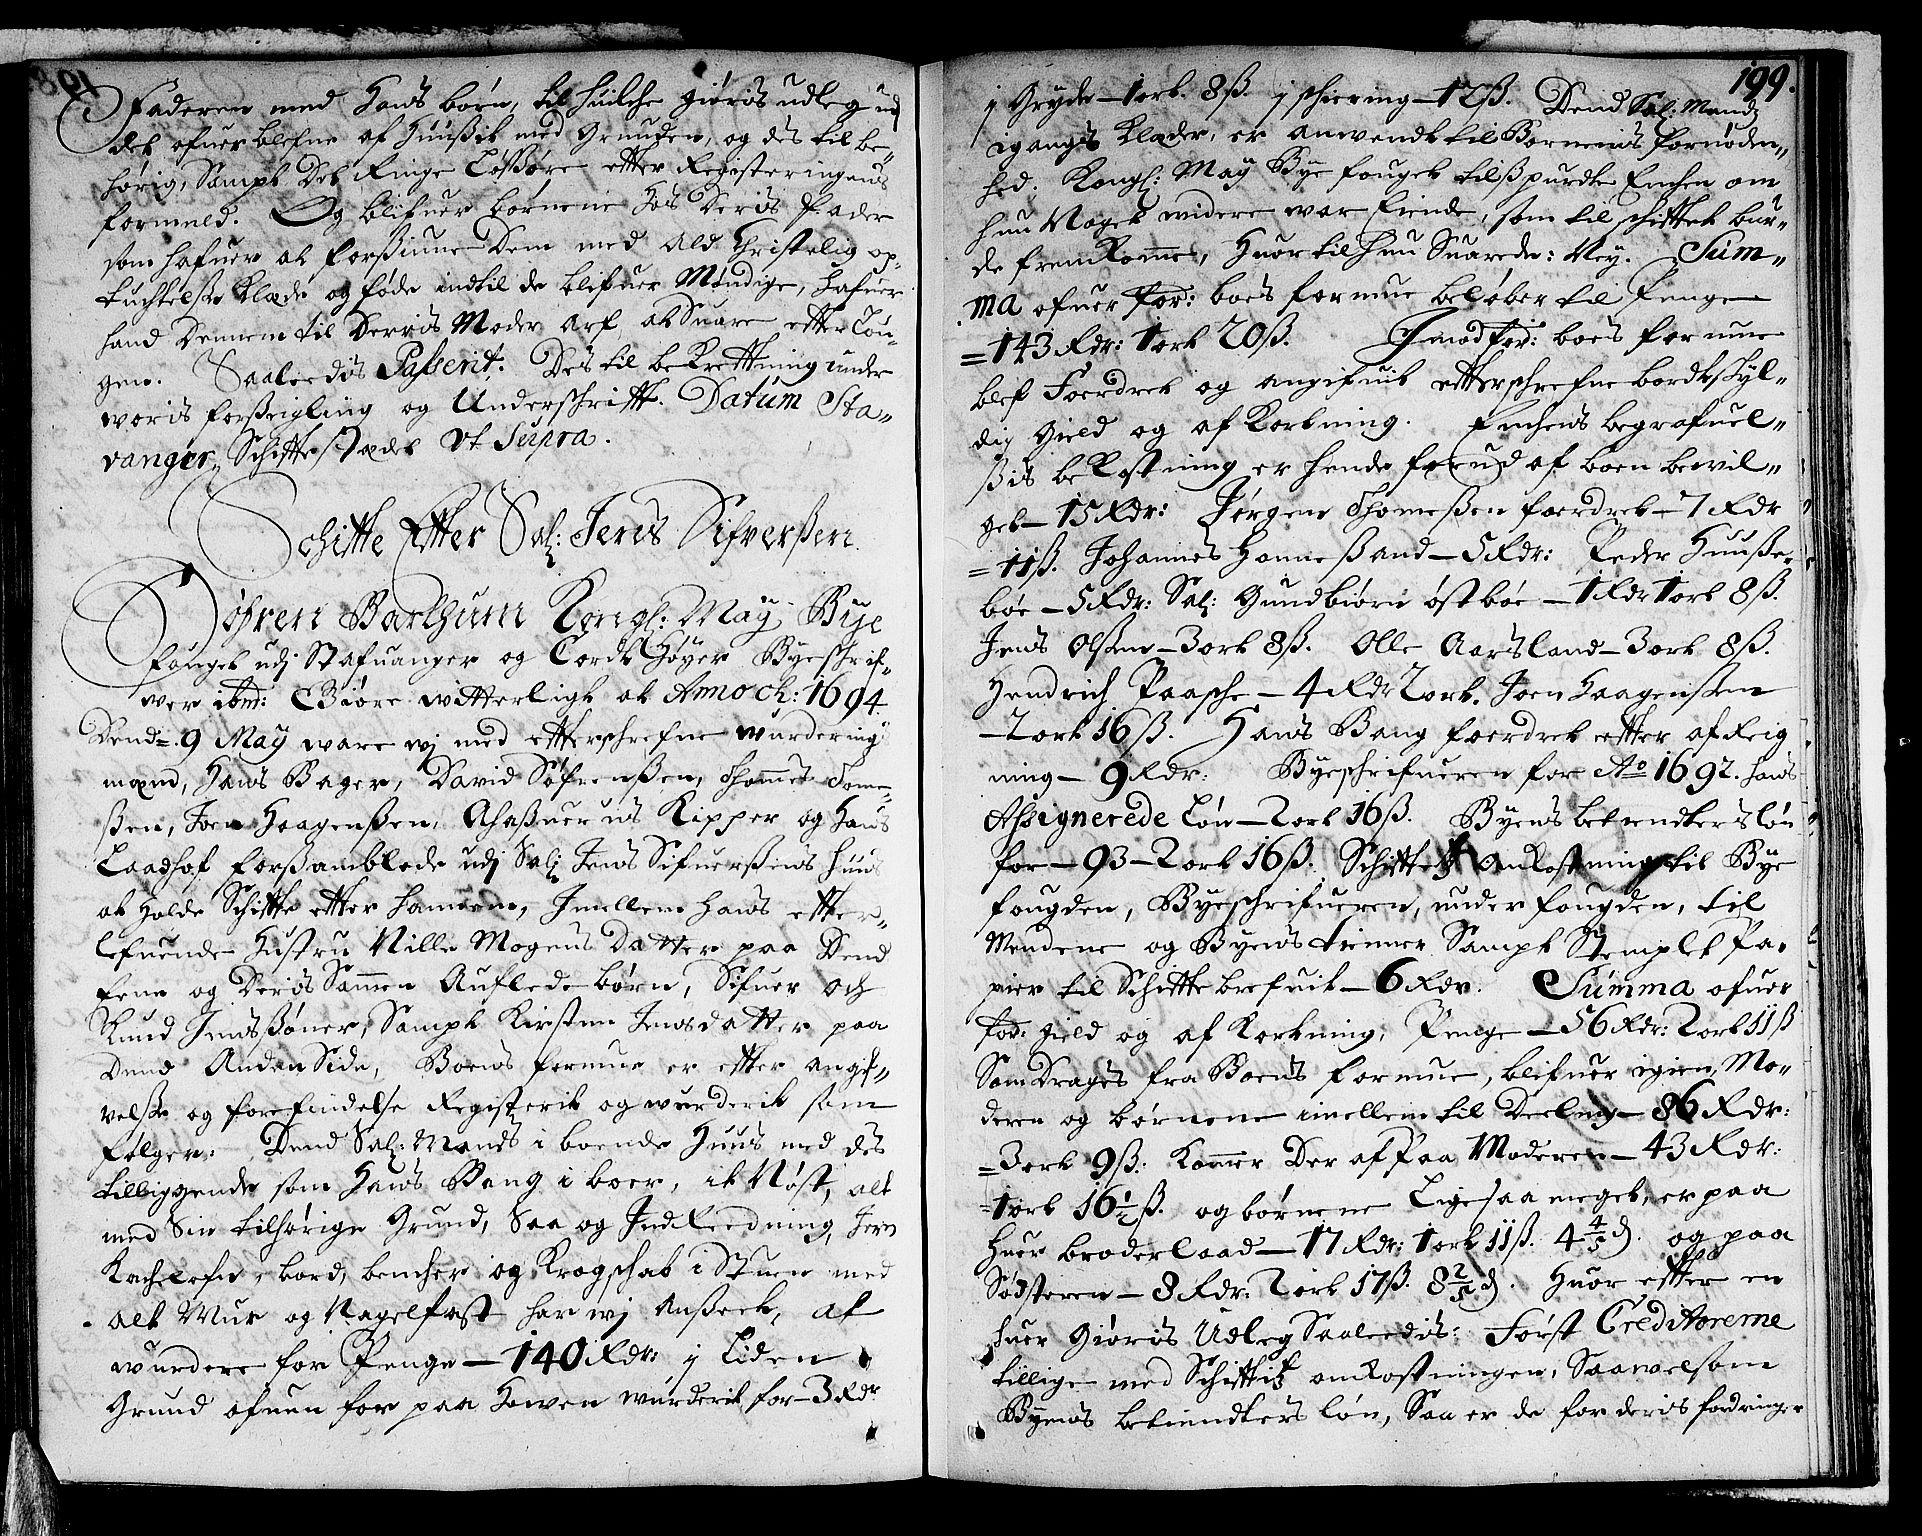 Faderen med hans børn, til huilche giøris udleg udj
det ofuer blefne af Huußit med Grunden, og des til be-
hørig, Sampt Det Ringe Løßøre etter Registeringens
formeld. Og blifuer børnene hos Deris Fader
som hafuer at forßiune Dem med Ald Christelig op-
tuchtelße Klæde og føde indtil de blifuer Møndige, hafuer
hand Dennem til Derris Moders Arf at Suare etter Lou-
gen. Saaleedis Passerit. Des til bekrefttning under
woris forßeigling og Underschrifft. Datum Sta-
vanger, Schiftte stædet Vt Supra.
Schifte Etter Sal: Jens Sifverßen.
Søfren Barthum Kongl: May Bye
fouget udj Stafuanger og Cordt Høyer Byeschrif-
wer ibm: Giøre witterligt at Anno ch: 1694
Dend 9 May ware wj med etterschrefne wurderings
mænd, Hans Bager, David Søfrenßen, Thomes Tome-
ßen, Joen Haagenßen, Ahaßuerus Kipper og Hans
Laadhof forßamblede udj Sal: Jens Sifuerßens huus
at holde Schiftte etter hannem, Jmellem hans etter-
lefuende Hustru Nille Mogens Datter paa Dend
Eene og Deris Sammen Auflede børn, Sifuer och
Knud Jensßøner, Sampt Kirsten Jensdatter paa
Dend Anden Side, Boens formue er etter angif-
velße og forefindelse Registerit og wurderit som
følger. Dend Sal: Mands iboende Huus med des
tilliggende som Hans Bang i boer, it Nøst, alt
med Sin tilhørige Grund, Saa og Jndreedning, Jern
Kachelofn, bord, bencher og Krogschab i Stuen med
alt Mur og Nagelfast har wj Anßeet, at
wurdere for Penge - 140 Rdr: j Liden
Grund ofuen for paa Hawen wurderit for - 3 Rdr
199.
j Gryde - 1 ort. 8ß. j schiering - 12ß. Dend Sal: Mands
igangs Klæder, er anwendt til Børnenis fornøden-
hed. Kongl: May Bye fouget tilßpurdte Enchen om
hun Noget widere war Eiende, som til schifttet bur-
de frem komme, huor til hun Suarede: Ney. Sum-
ma ofuer for: boes formue beløber til Penge
= 143 Rdr: 1 ort 20ß. Jmod for: boes formue
blef Foerdret og angifuit etterschrefne bortskyl-
dig Gield og af Kortning. Enchens begrafuel-
ßis bekostning er hende forud af boen bewil-
get - 15 Rdr: Jørgen Thomeßen foerdret - 7 Rdr
= 11ß. Johannes Hanneßand - 5 Rdr: Peder Huuße-
bøe - 5 Rdr: Sal: Gundbiørn østbøe - 1 Rdr 1 ort 8ß.
Jens Olßen - 3 ort 8ß. Olle Aarsland - 3 ort 8ß.
Hendrich Paasche - 4 Rdr 2 ort. Joen Haagenßen
- 2 ort 16ß. Hans Bang foerdret etter afReig
ning - 9 Rdr: Byeschrifueren for Ao 1692. hans
Assignerede Løn - 2 ort 16ß. Byens betiendters løn
for - 93 - 2 ort 16ß. Schiftte omkostning til Bye
fougden, Byeschrifueren, underfougden, til
Mendene og Byens tienner Sampt Stemplet Pa-
pier til Schiftte brefuit - 6 Rdr. Summa ofuer
for: gield og af Kortning, Penge - 56 Rdr: 2 ort 11ß
Som Drages fra Boens formue, blifuer igien, Mo-
deren og børnene imellem til Deeling - 86 Rdr:
= 3 ort 9ß: Kommer Der af Paa Moderen - 43 Rdr:
= 1 ort 16½ß. og børnene Lige saa meget, er paa
huer broderlaad - 17 Rdr: 1 ort 11ß. 4 4/5 d. og paa
Søsteren - 8 Rdr: 2 ort 17ß. 8 2/5 d. Huor etter en
huer Giøris Udleg Saaleedis: Først Creditorerne
tillige med Schifttes omkostningen, Saawelsom
Byens betiendters løn, Saa er de for deris fordringer